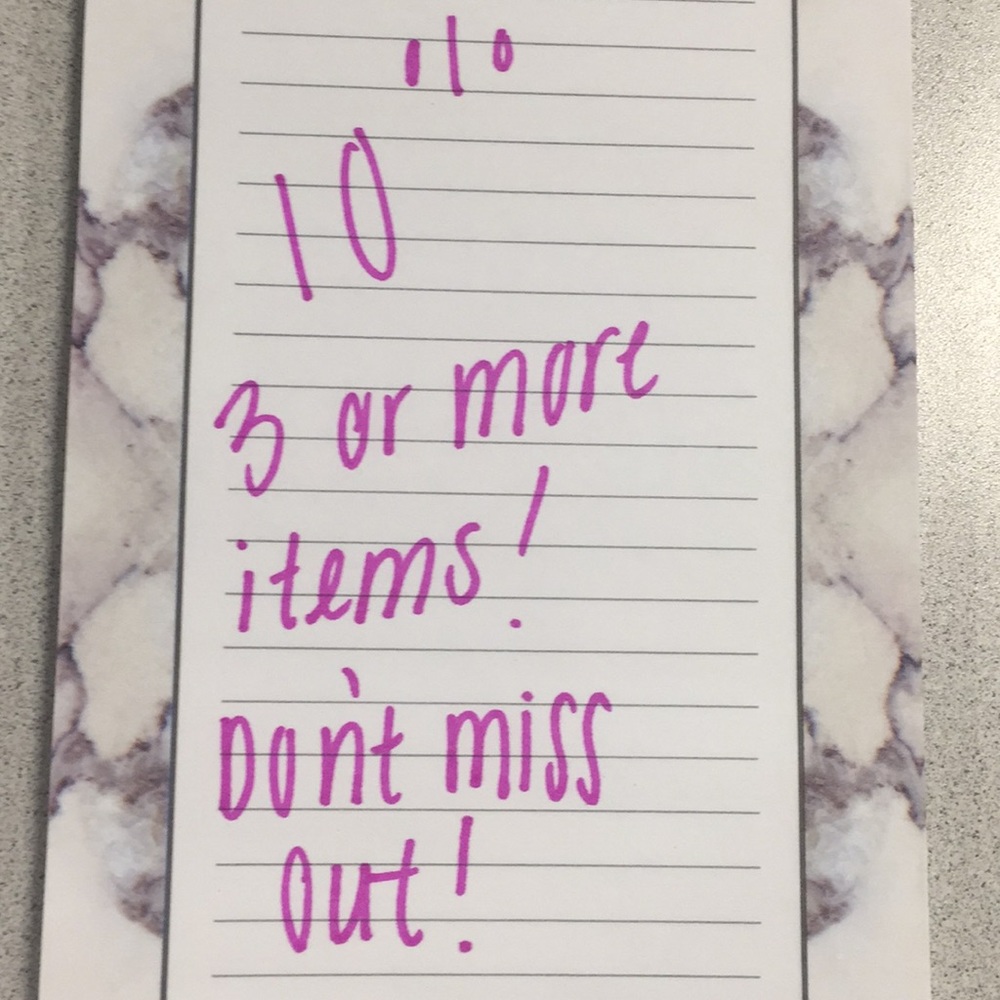 %
10
3 or more
items!
Don't miss
out!